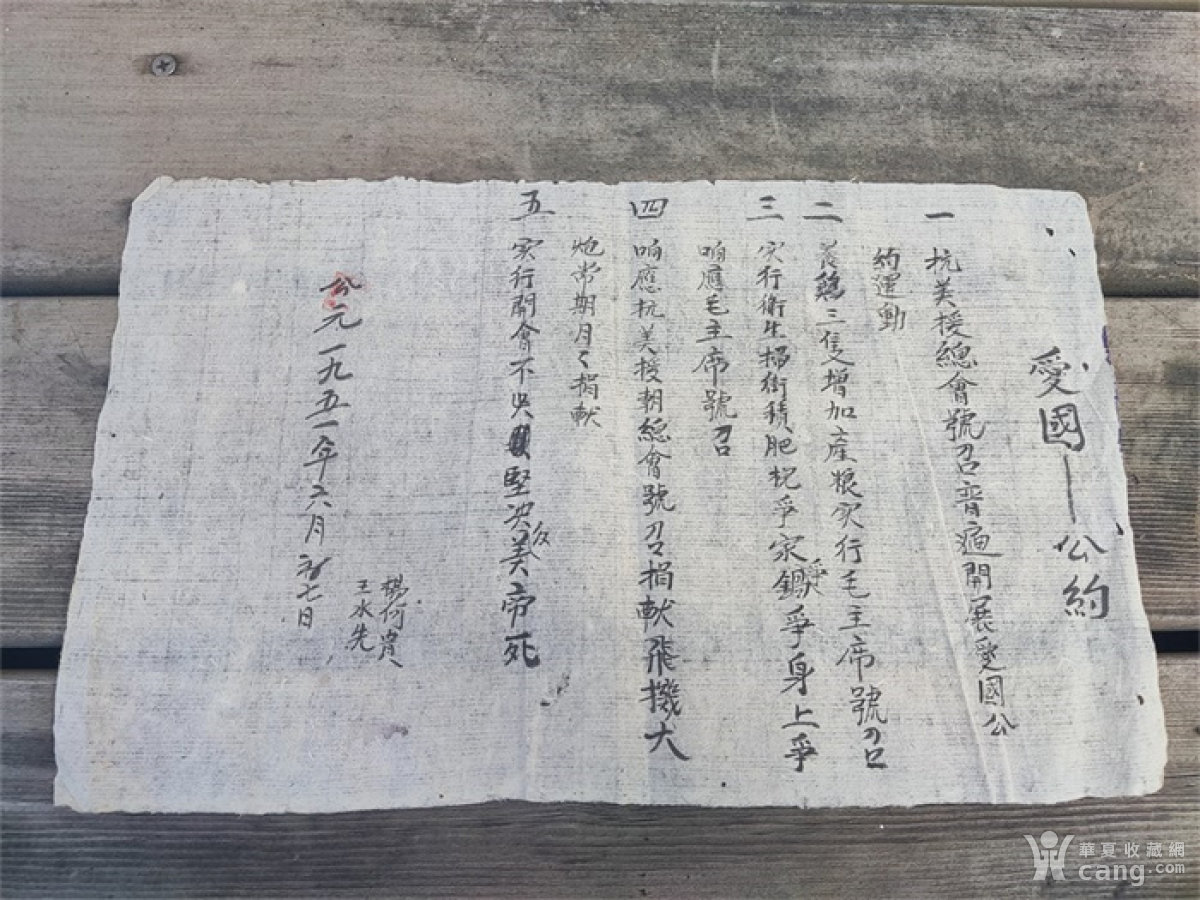 愛國—公約
一 抗美授總會號召普遍開展愛國公
約運動
二 養鷄三隻增加產粮实行毛主席號召
三 实行衛生掃街積肥 爭家 爭身上爭
响應毛主席號召
四 响應抗美授朝總會號召捐献飛機大
炮常期月々捐献
五 实行開會不 堅决反美帝死
公元一九五一年六月 七日
楊何
王水先
華夏收藏網
cang.com